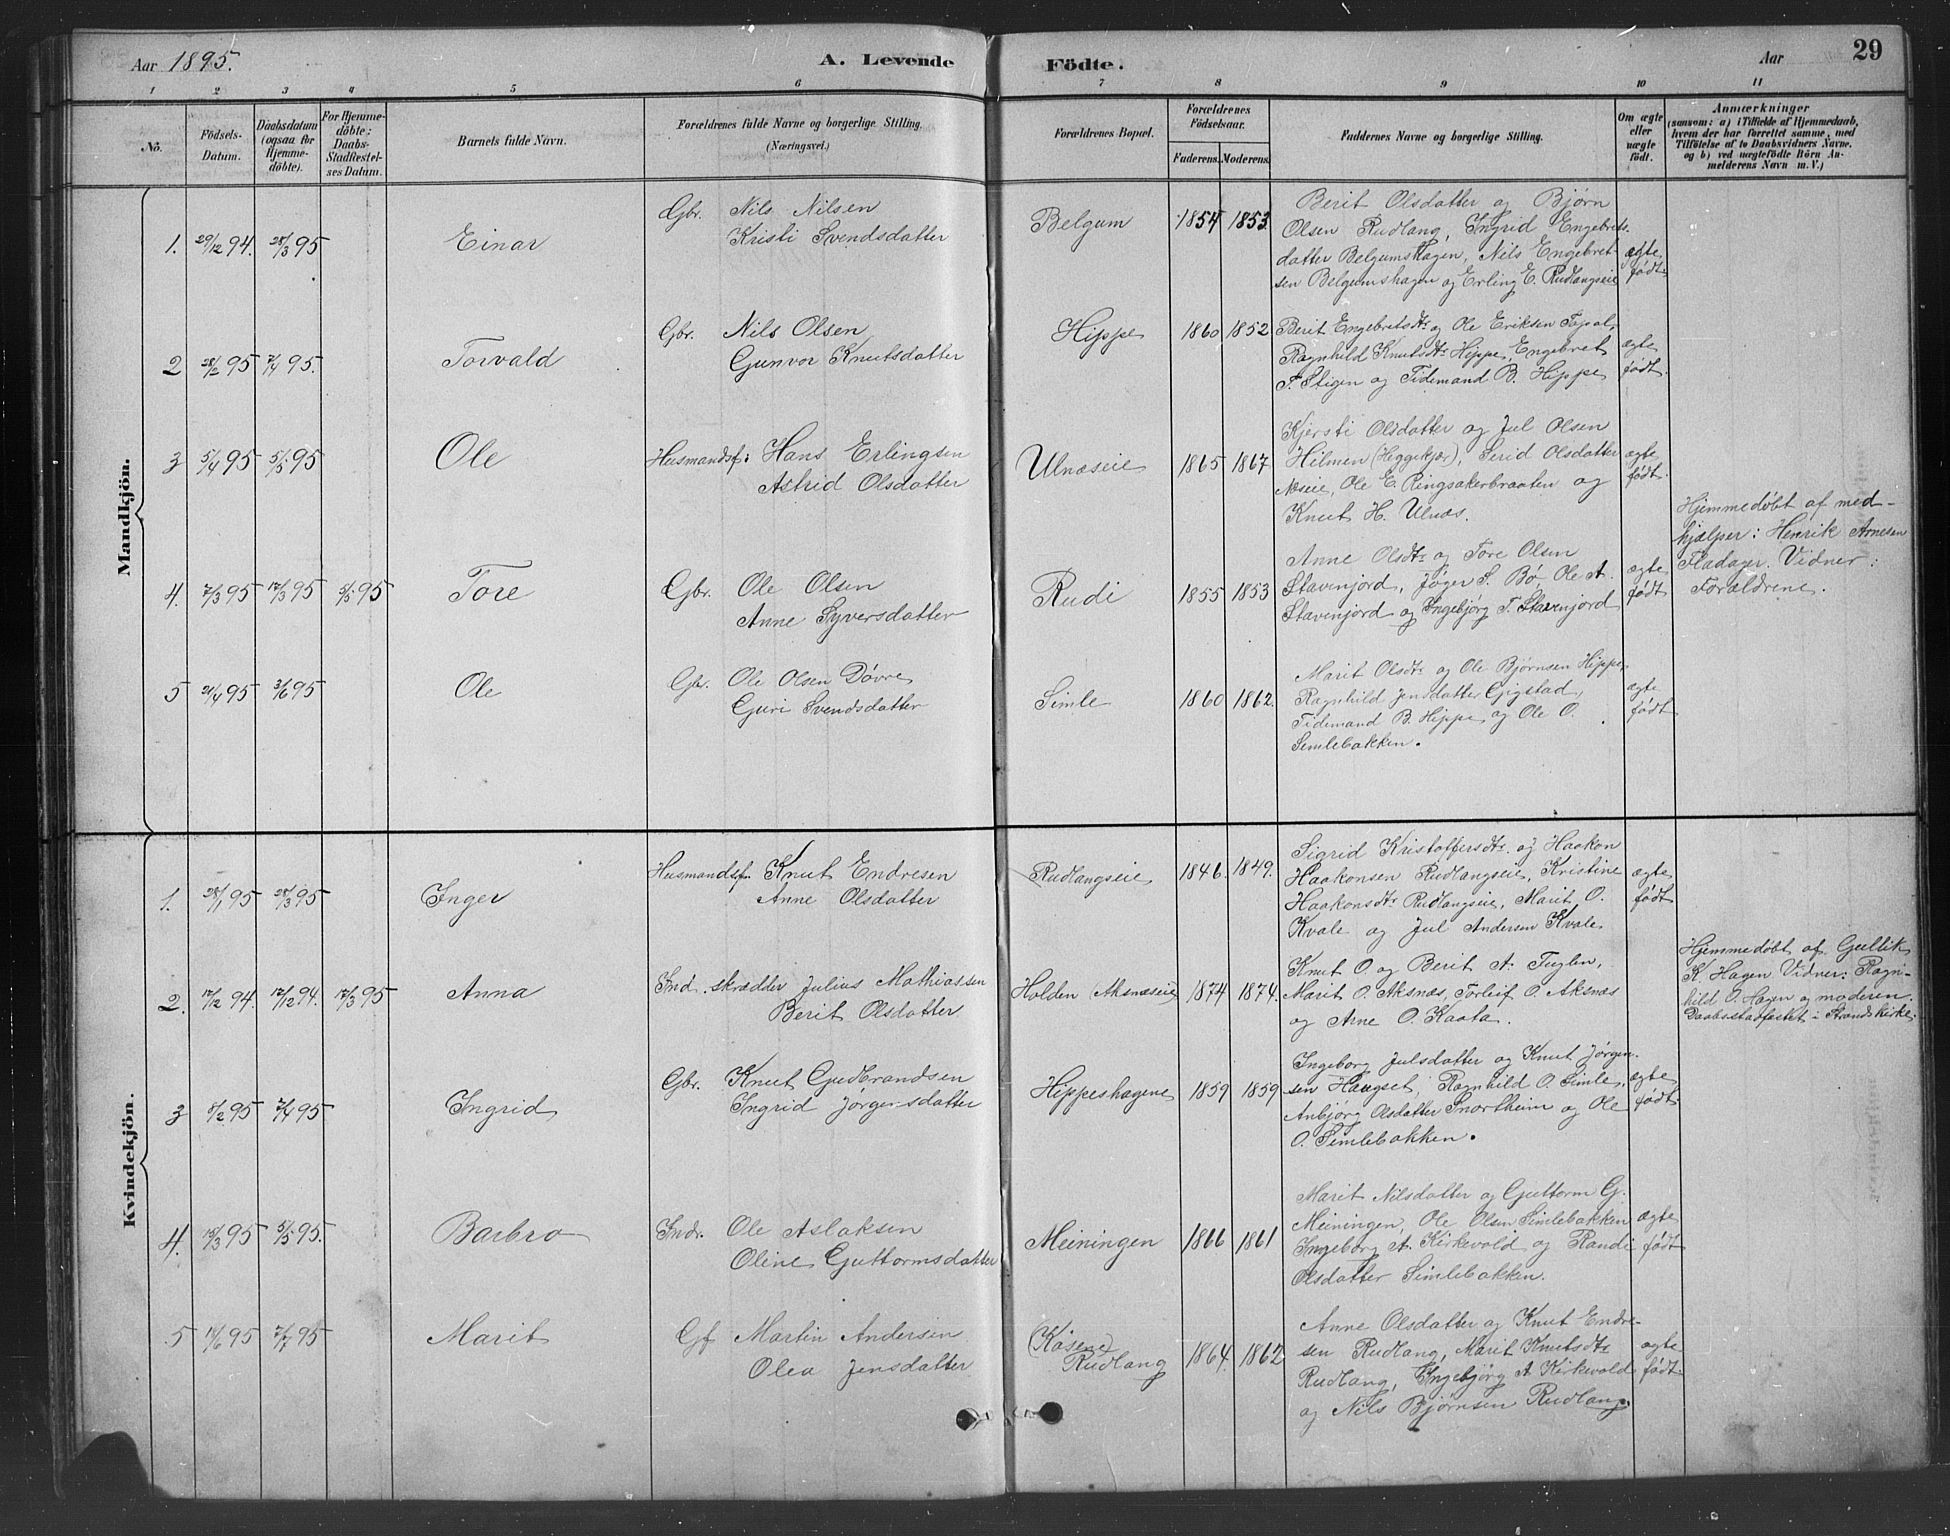 Aar 1895.
A. Levende
Födte.
Aar
29
1 2 3 4 5 6 7 8 9 10 11
No.
Födsels-
Datum.
Daabsdatum
(ogsaa for
Hjemme-
döbte).
For Hjemme-
döbte;
Daabs-
Stadfæstel-
ses Datum.
Barnets fulde Navn.
Forældrenes fulde Navne og borgerlige Stilling.
(Næringsvei.)
Forældrenes Bopæl.
Forældrenes
Födselsaar.
Faderens. Moderens.
Faddernes Navne og borgerlige Stilling.
Om ægte
eller
uægte
födt.
Anmærkninger
(saasom: a) i Tilfælde af Hjemmedaab,
hvem der har forrettet samme, med
Tilföielse af to Daabsvidners Navne.
og b) ved uægtefödte Börn An-
melderens Navn m. V.)
Mandkjön.
1. 29/12 94. 28/3 95
Einar
Gbr. Nils Nilsen
Kristi Svendsdatter
Belgum
1854 1853.
Berit Olsdatter og Bjørn
Olsen Rudlang, Ingrid Engebrets-
datter Belgumshagen, Nils Engebret-
sen Belgumshagen og Erling E. Rudlangseie
ægte
født
2 28/2 95 7/4 95.
Torvald
Gbr. Nils Olsen
Gunvor Knutsdatter
Hippe
1860 1852
Berit Engebretsdtr og Ole Eriksen Fopal,
Ragnhild Knutsdtr Hippe, Engebret
T. Stigen og Tidemand B. Hippe
ægte
født.
3 5/4 95 5/5 95
Ole
Husmandsf: Hans Erlingsen
Astrid Olsdatter
Ulnæseie
1865 1867
Kjersti Olsdatter og Jul Olsen
Hilmen (Heggekjær), Serid Olsdatter
Næseie, Ole E. Ringsakerbraaten og
Knut H. Ulnæs.
ægte
født.
4. 7/3 95 17/3 95 5/5 95
Tore
Gbr. Ole Olsen
Anne Syversdatter
Rudi
1855 1853
Anne Olsdtr og Tore Olsen
Stavenjord, Jøger S. Bø, Ole A.
Stavenjord og Ingebjørg T. Stavenjord
ægte
født
Hjemmedøbt af med-
hjælper: Henrik Arnesen
Fladager. Vidner:
Forældrene.
5 21/4 95 3/6 95
Ole
Gbr. Ole Olsen Døvre
Guri Svendsdatter
Simle
1860 1862.
Marit Olsdtr og Ole Bjørnsen Hippe,
Ragnhild Jensdatter Gigstad,
Tidemand B. Hippe og Ole O.
Simlebakken.
ægte
født
Kvindekjön.
1. 28/1 95 28/3 95
Inger
Husmandsf. Knut Endresen
Anne Olsdatter
Rudlangseie
1846. 1849.
Sigrid Kristoffersdtr. og Haakon
Haakonsen Rudlangseie, Kristine
Haakonsdtr Rudlangseie, Marit O.
Kvale og Jul Andersen Kvale
ægte
født
2. 12/12 94. 17/12 94. 17/3 95
Anna
Ind. skrædder Julius Mathiassen
Berit Olsdatter
Holden Aksnæseie
1874 1874.
Knut O. og Berit A. Fuglen,
Marit O. Aksnæs, Torleif O. Aksnæs
og Arne O. Kaata.
Hjemmedøbt af Gullik
K. Hagen Vidner: Ragn-
hild O. Hagen og moderen.
Daabsstadfæstet i Strands kirke.
3 8/2 95 7/4 95
Ingrid
Gbr. Knut Gudbrandsen
Ingrid Jørgensdatter
Hippeshagene
1859 1859
Ingeborg Julsdatter og Knut Jørgen-
sen Haugset, Ragnhild O. Simle,
Anbjørg Olsdatter Snortheim og Ole
O. Simlebakken.
ægte
født.
4. 15/3 95 5/5 95.
Barbro
Indr. Ole Aslaksen
Oline Guttormsdatter
Meiningen
1866 1861
Marit Nilsdatter og Guttorm G.
Meiningen, Ole Olsen Simlebakken
Ingeborg A. Kirkevold og Randi
Olsdatter Simlebakken.
ægte
født
5 14/6 95 7/7 95
Marit
Gf Martin Andersen
Olea Jensdatter
(Kåsene)
Rudlang
1864. 1862
Anne Olsdatter og Knut Endre-
sen Rudlang, Marit Knutsdtr
Rudlang, Ingebjørg A Kirkevold
og Nils Bjørnsen Rudlang.
ægte
født.